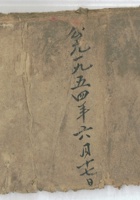 公元一九五四年六月十七日